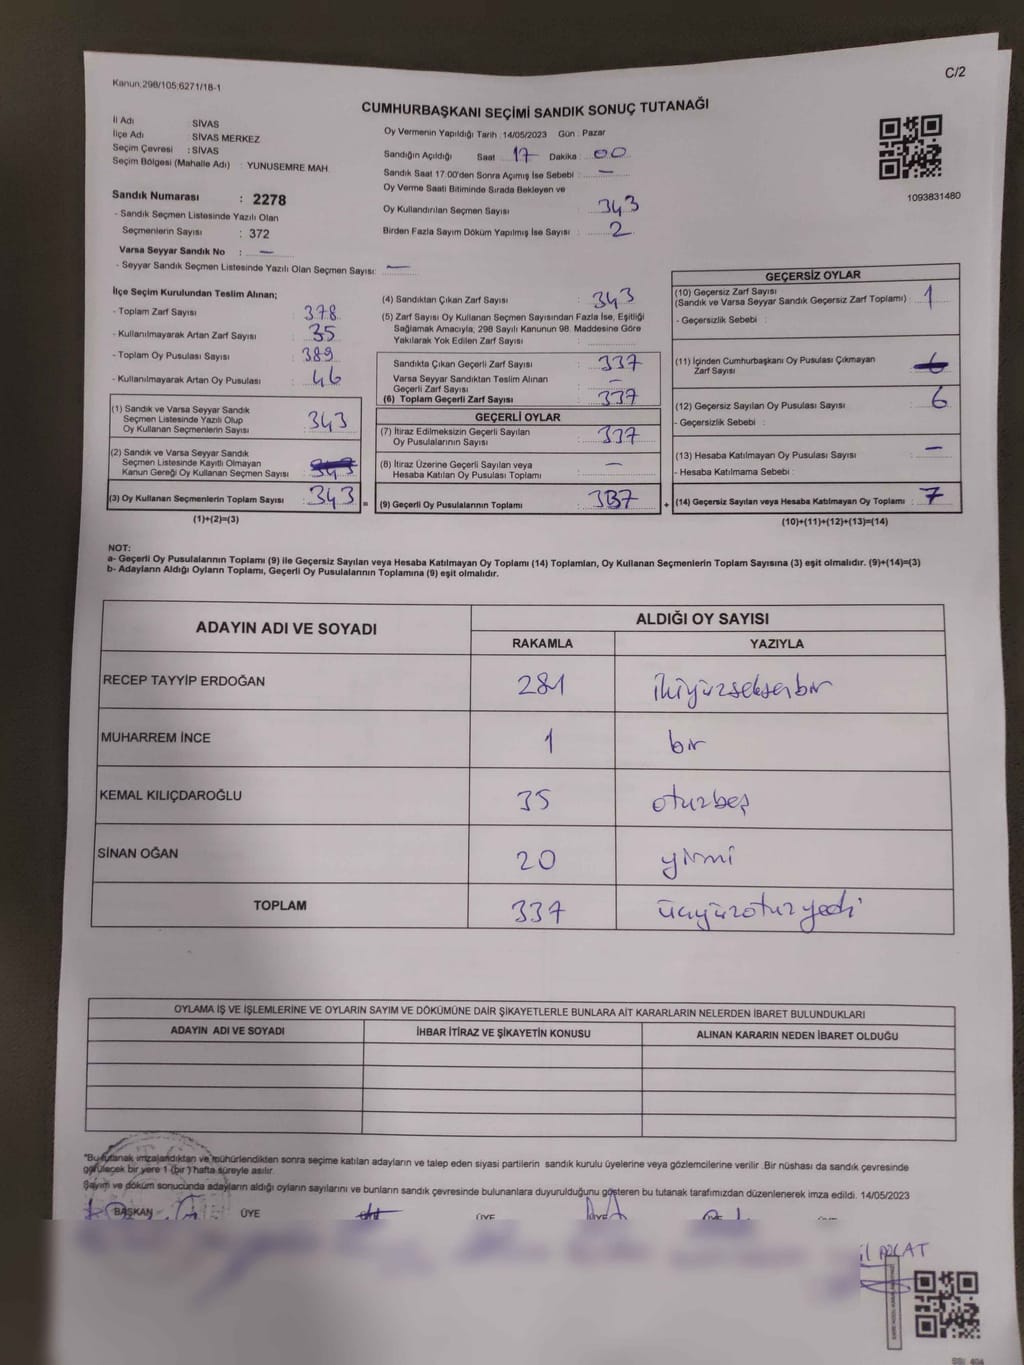 C/2
Kanun:298/105;6271/18-1
CUMHURBAŞKANI SEÇİMİ SANDIK SONUÇ TUTANAĞI
İl Adı : SİVAS
İlçe Adı : SİVAS MERKEZ
Seçim Çevresi : SİVAS
Seçim Bölgesi (Mahalle Adı) : YUNUSEMRE MAH.
Sandık Numarası : 2278
- Sandık Seçmen Listesinde Yazılı Olan
Seçmenlerin Sayısı : 372
Varsa Seyyar Sandık No : —
- Seyyar Sandık Seçmen Listesinde Yazılı Olan Seçmen Sayısı: —
Oy Vermenin Yapıldığı Tarih : 14/05/2023 Gün : Pazar
Sandığın Açıldığı Saat 17 Dakika : 00
Sandık Saat 17:00'den Sonra Açılmış İse Sebebi : —
Oy Verme Saati Bitiminde Sırada Bekleyen ve
Oy Kullandırılan Seçmen Sayısı : 343
Birden Fazla Sayım Döküm Yapılmış İse Sayısı : 2
1093831480
İlçe Seçim Kurulundan Teslim Alınan;
- Toplam Zarf Sayısı : 378
- Kullanılmayarak Artan Zarf Sayısı : 35
- Toplam Oy Pusulası Sayısı : 389
- Kullanılmayarak Artan Oy Pusulası : 46
(1) Sandık ve Varsa Seyyar Sandık
Seçmen Listesinde Yazılı Olup
Oy Kullanan Seçmenlerin Sayısı : 343
(2) Sandık ve Varsa Seyyar Sandık
Seçmen Listesinde Kayıtlı Olmayan
Kanun Gereği Oy Kullanan Seçmen Sayısı : 343
(3) Oy Kullanan Seçmenlerin Toplam Sayısı : 343
(1)+(2)=(3)
(4) Sandıktan Çıkan Zarf Sayısı : 343
(5) Zarf Sayısı Oy Kullanan Seçmen Sayısından Fazla İse, Eşitliği
Sağlamak Amacıyla, 298 Sayılı Kanunun 98. Maddesine Göre
Yakılarak Yok Edilen Zarf Sayısı :
Sandıkta Çıkan Geçerli Zarf Sayısı : 337
Varsa Seyyar Sandıktan Teslim Alınan
Geçerli Zarf Sayısı : —
(6) Toplam Geçerli Zarf Sayısı : 337
GEÇERLİ OYLAR
(7) İtiraz Edilmeksizin Geçerli Sayılan
Oy Pusulalarının Sayısı : 337
(8) İtiraz Üzerine Geçerli Sayılan veya
Hesaba Katılan Oy Pusulası Toplamı : —
= (9) Geçerli Oy Pusulalarının Toplamı : 337
GEÇERSİZ OYLAR
(10) Geçersiz Zarf Sayısı
(Sandık ve Varsa Seyyar Sandık Geçersiz Zarf Toplamı) : 1
- Geçersizlik Sebebi :
(11) İçinden Cumhurbaşkanı Oy Pusulası Çıkmayan
Zarf Sayısı : 6
(12) Geçersiz Sayılan Oy Pusulası Sayısı : 6
- Geçersizlik Sebebi :
(13) Hesaba Katılmayan Oy Pusulası Sayısı : —
- Hesaba Katılmama Sebebi :
+ (14) Geçersiz Sayılan veya Hesaba Katılmayan Oy Toplamı : 7
(10)+(11)+(12)+(13)=(14)
NOT:
a- Geçerli Oy Pusulalarının Toplamı (9) ile Geçersiz Sayılan veya Hesaba Katılmayan Oy Toplamı (14) Toplamları, Oy Kullanan Seçmenlerin Toplam Sayısına (3) eşit olmalıdır. (9)+(14)=(3)
b- Adayların Aldığı Oyların Toplamı, Geçerli Oy Pusulalarının Toplamına (9) eşit olmalıdır.
ADAYIN ADI VE SOYADI
ALDIĞI OY SAYISI
RAKAMLA YAZIYLA
RECEP TAYYİP ERDOĞAN 281 ikiyüzseksenbir
MUHARREM İNCE 1 bir
KEMAL KILIÇDAROĞLU 35 oturbeş
SİNAN OĞAN 20 yirmi
TOPLAM 337 üçyüzoturyedi
OYLAMA İŞ VE İŞLEMLERİNE VE OYLARIN SAYIM VE DÖKÜMÜNE DAİR ŞİKAYETLERLE BUNLARA AİT KARARLARIN NELERDEN İBARET BULUNDUKLARI
ADAYIN ADI VE SOYADI İHBAR İTİRAZ VE ŞİKAYETİN KONUSU ALINAN KARARIN NEDEN İBARET OLDUĞU
"Bu tutanak imzalandıktan ve mühürlendikten sonra seçime katılan adayların ve talep eden siyasi partilerin sandık kurulu üyelerine veya gözlemcilerine verilir .Bir nüshası da sandık çevresinde
görülecek bir yere 1 (bir ) hafta süreyle asılır.
Sayım ve döküm sonucunda adayların aldığı oyların sayılarını ve bunların sandık çevresinde bulunanlara duyurulduğunu gösteren bu tutanak tarafımızdan düzenlenerek imza edildi. 14/05/2023
BAŞKAN ÜYE ÜYE ÜYE
POLAT